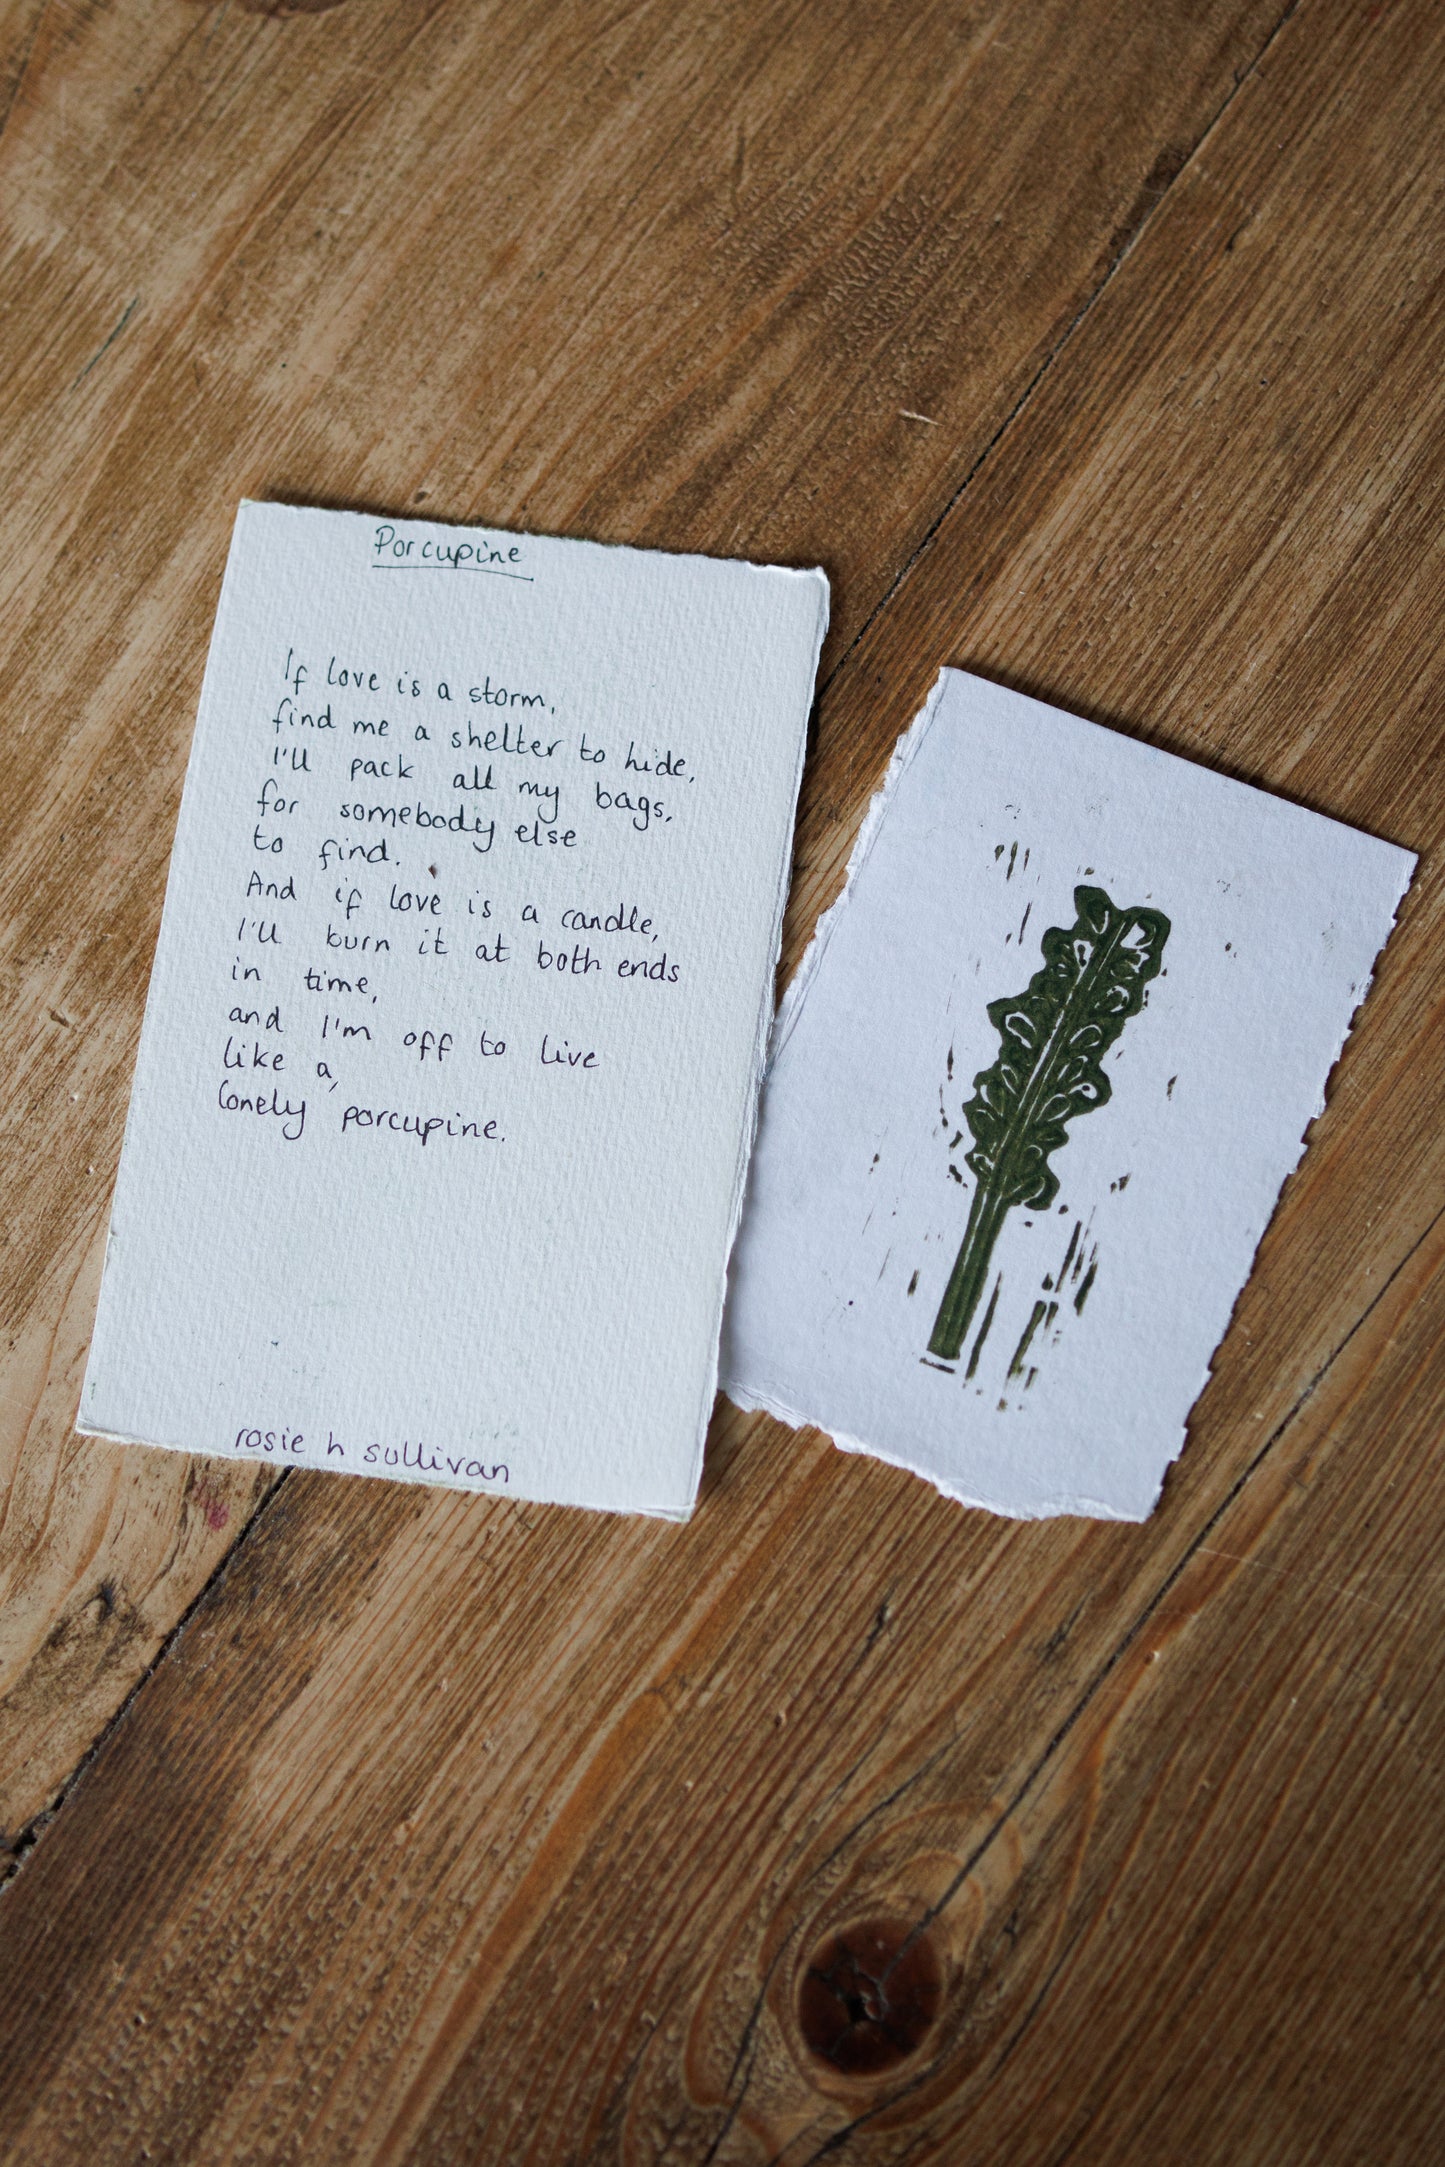 Porcupine
If love is a storm,
find me a shelter to hide,
I'll pack all my bags,
for somebody else
to find.
And if love is a candle,
I'll burn it at both ends
in time,
and I'm off to live
like a,
lonely porcupine.
rosie h sullivan